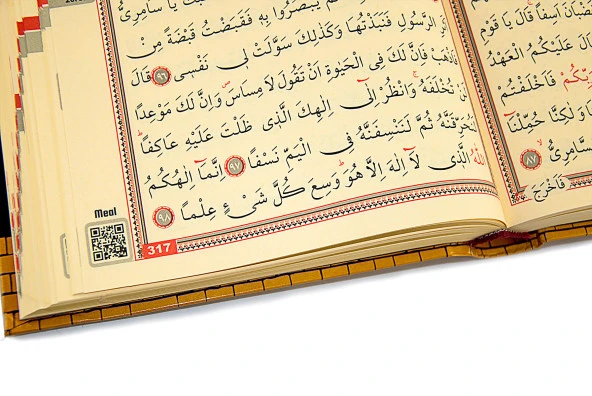 اَسِفاً قَالَ يَا قَوْمِ
عَلَيْكُمُ الْعَهْدُ
فَاَخْلَفْتُمْ
وَلٰكِنَّا حُمِّلْنَٓا
٨٧
فَاَخْرَجَ
يَا سَامِرِىُّ
يَبْصُرُوا بِهٖ فَقَبَضْتُ قَبْضَةً مِنْ
الرَّسُولِ فَنَبَذْتُهَا وَكَذٰلِكَ سَوَّلَتْ لٖى نَفْسٖى ٩٦ قَالَ
فَاذْهَبْ فَاِنَّ لَكَ فِى الْحَيٰوةِ اَنْ تَقُولَ لَا مِسَاسَ وَاِنَّ لَكَ مَوْعِدًا
تُخْلَفَهُ وَانْظُرْ اِلٰٓى اِلٰهِكَ الَّذٖى ظَلْتَ عَلَيْهِ عَاكِفًا
لَنُحَرِّقَنَّهُ ثُمَّ لَنَنْسِفَنَّهُ فِى الْيَمِّ نَسْفًا ٩٧ اِنَّمَٓا اِلٰهُكُمُ
اللّٰهُ الَّذٖى لَٓا اِلٰهَ اِلَّا هُوَ وَسِعَ كُلَّ شَىْءٍ عِلْمًا ٩٨
Meal
317